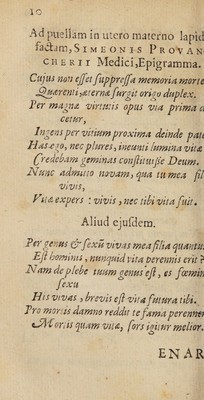 10
Ad puellam in utero materno lapid
factam, SIMEONIS PROVAN
CHERII Medici, Epigramma.
Cujus non esset suppressa memoria morte
Quærenti, æternæ surgit origo duplex.
Per magnæ virtutis opus via prima d
cetur,
Ingens per vitium proxima deinde pate
Has ego, nec plures, ineunti lumina vitæ
Credebam geminas constituisse Deum.
Nunc admitto novam, qua tu mea fil
vivis,
Vitæ expers: vivis, nec tibi vita fuit.
Aliud ejusdem.
Per genus & sexũ vivas mea filia quantu
Est hominis, nunquid vita perennis erit?
Nam de plebe tuum genus est, es fœmin
sexu
His vivas, brevis est vita futura tibi.
Pro mortis damno reddit te fama perenner
Mortis quam vitæ, sors igitur melior.
ENAR